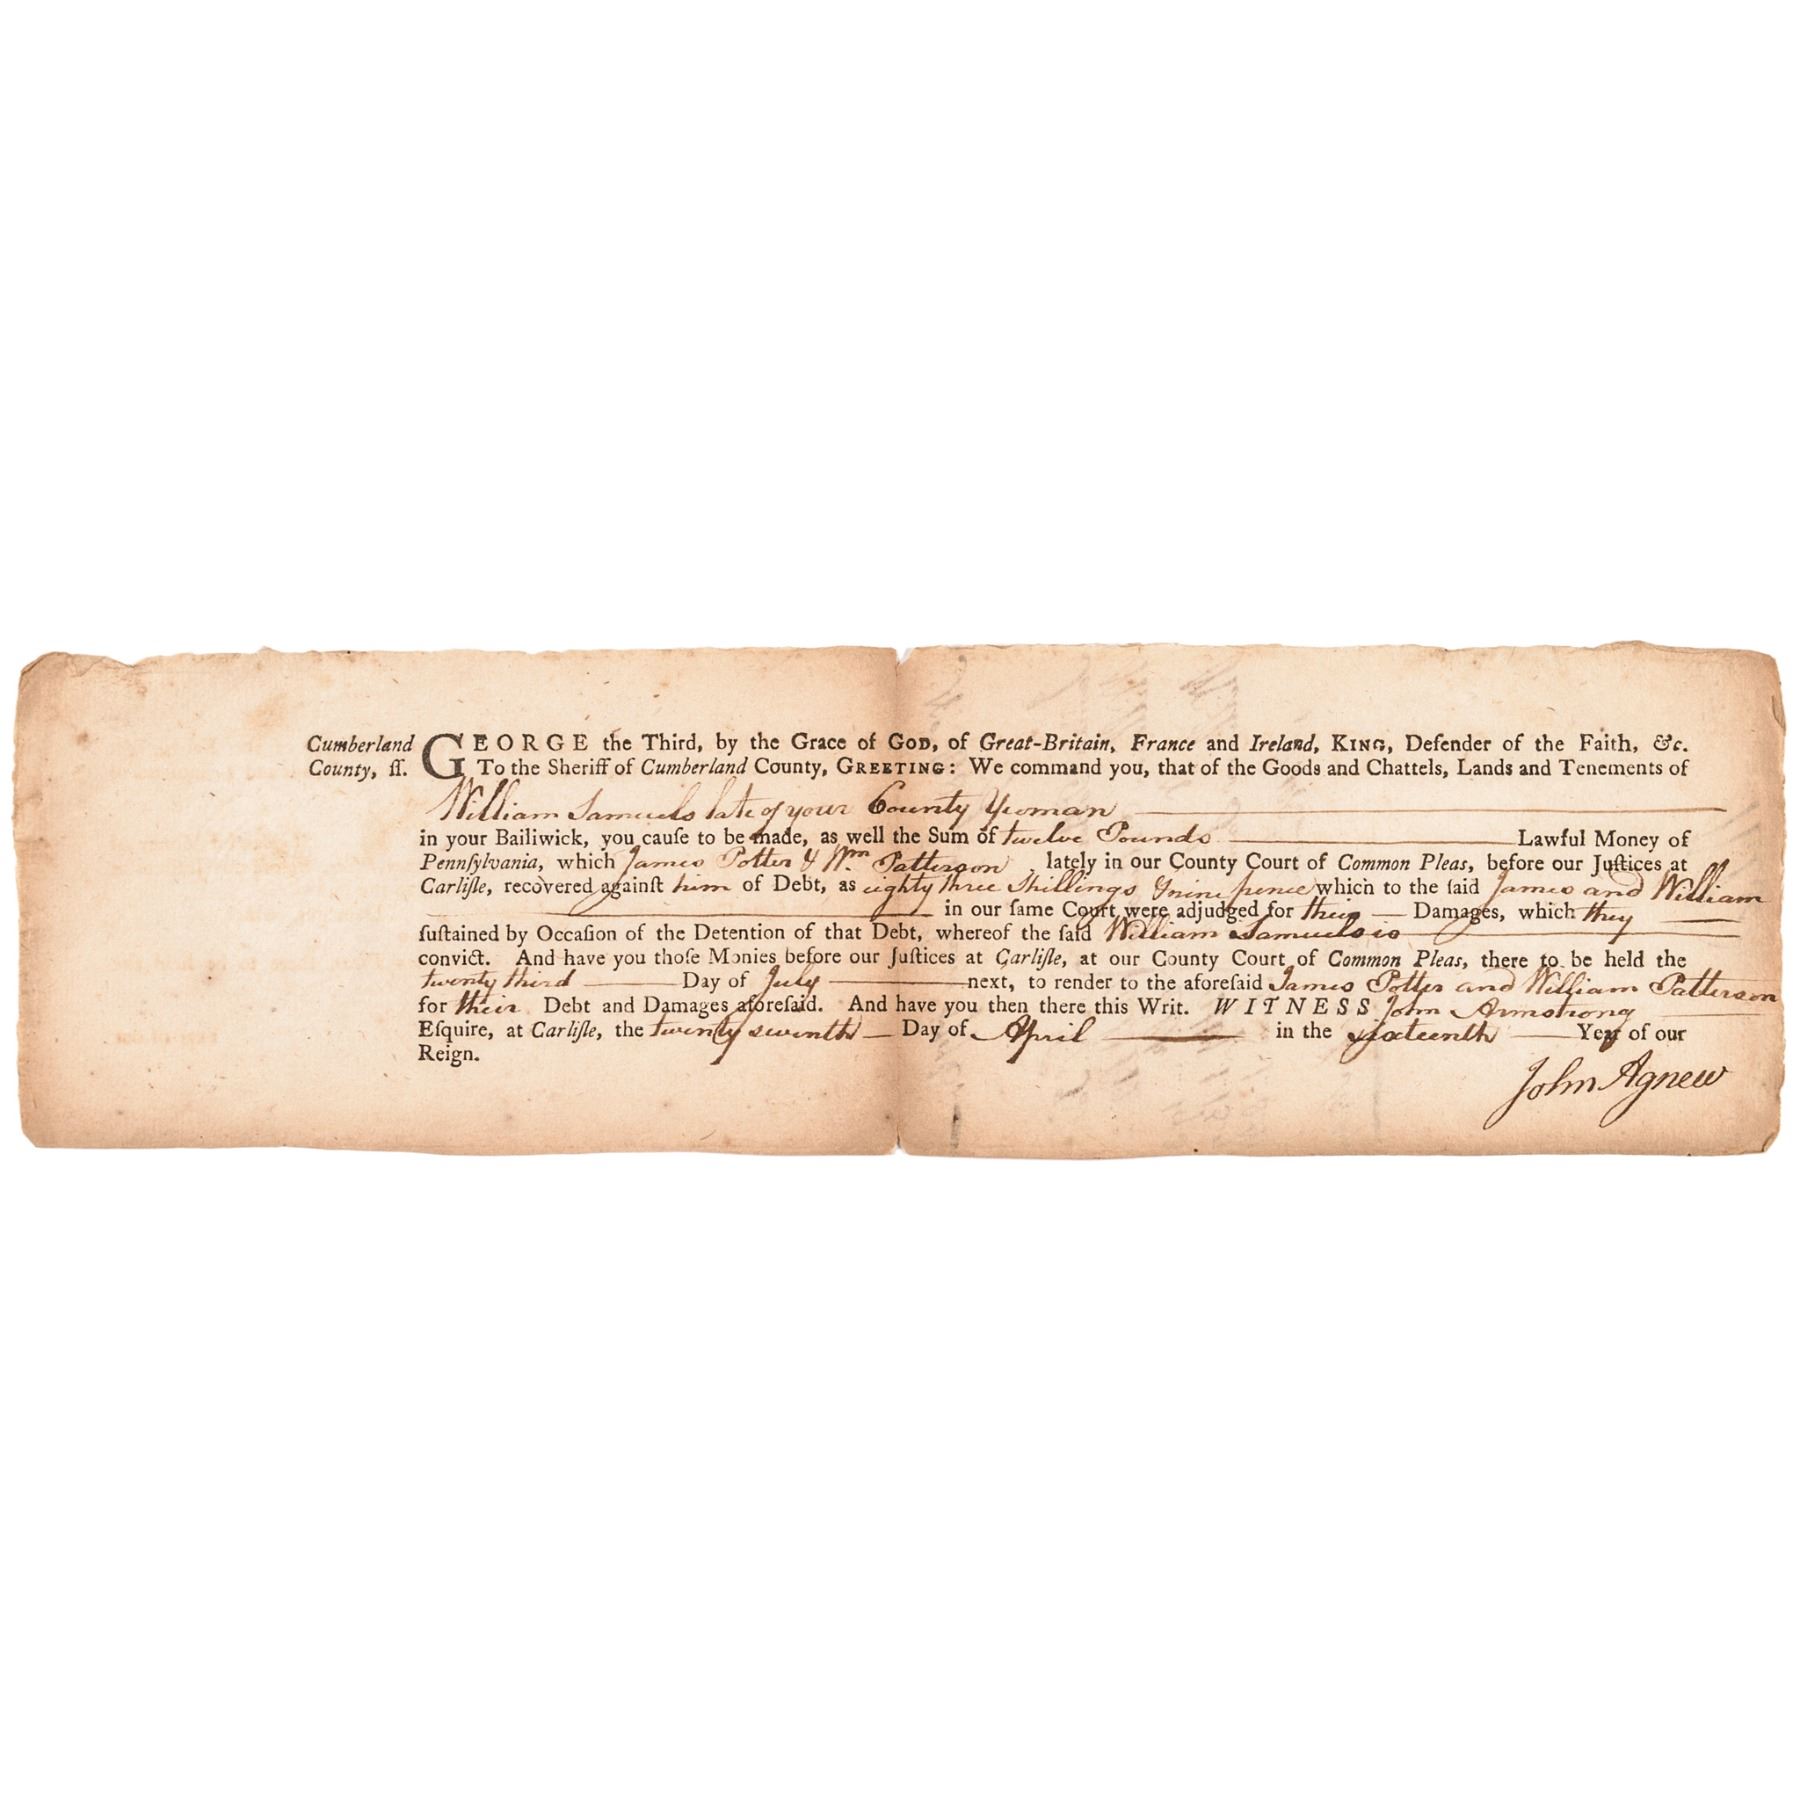 Cumberland County, ſſ.
GEORGE the Third, by the Grace of GOD, of Great-Britain, France and Ireland, KING, Defender of the Faith, &c.
To the Sheriff of Cumberland County, GREETING: We command you, that of the Goods and Chattels, Lands and Tenements of
William Samuels late of your County Yeoman
in your Bailiwick, you cauſe to be made, as well the Sum of twelve Pounds Lawful Money of
Pennſylvania, which James Potter & Wm Patterson lately in our County Court of Common Pleas, before our Juſtices at
Carliſle, recovered againſt him of Debt, as eighty three Shillings & nine pence which to the ſaid James and William
in our ſame Court were adjudged for their Damages, which they
ſuſtained by Occaſion of the Detention of that Debt, whereof the ſaid William Samuels is
convict. And have you thoſe Monies before our Juſtices at Carliſle, at our County Court of Common Pleas, there to be held the
twenty third Day of July next, to render to the aforeſaid James Potter and William Patterson
for their Debt and Damages aforeſaid. And have you then there this Writ. WITNESS John Armstrong
Eſquire, at Carliſle, the twenty seventh Day of April in the sixteenth Year of our
Reign.
John Agnew